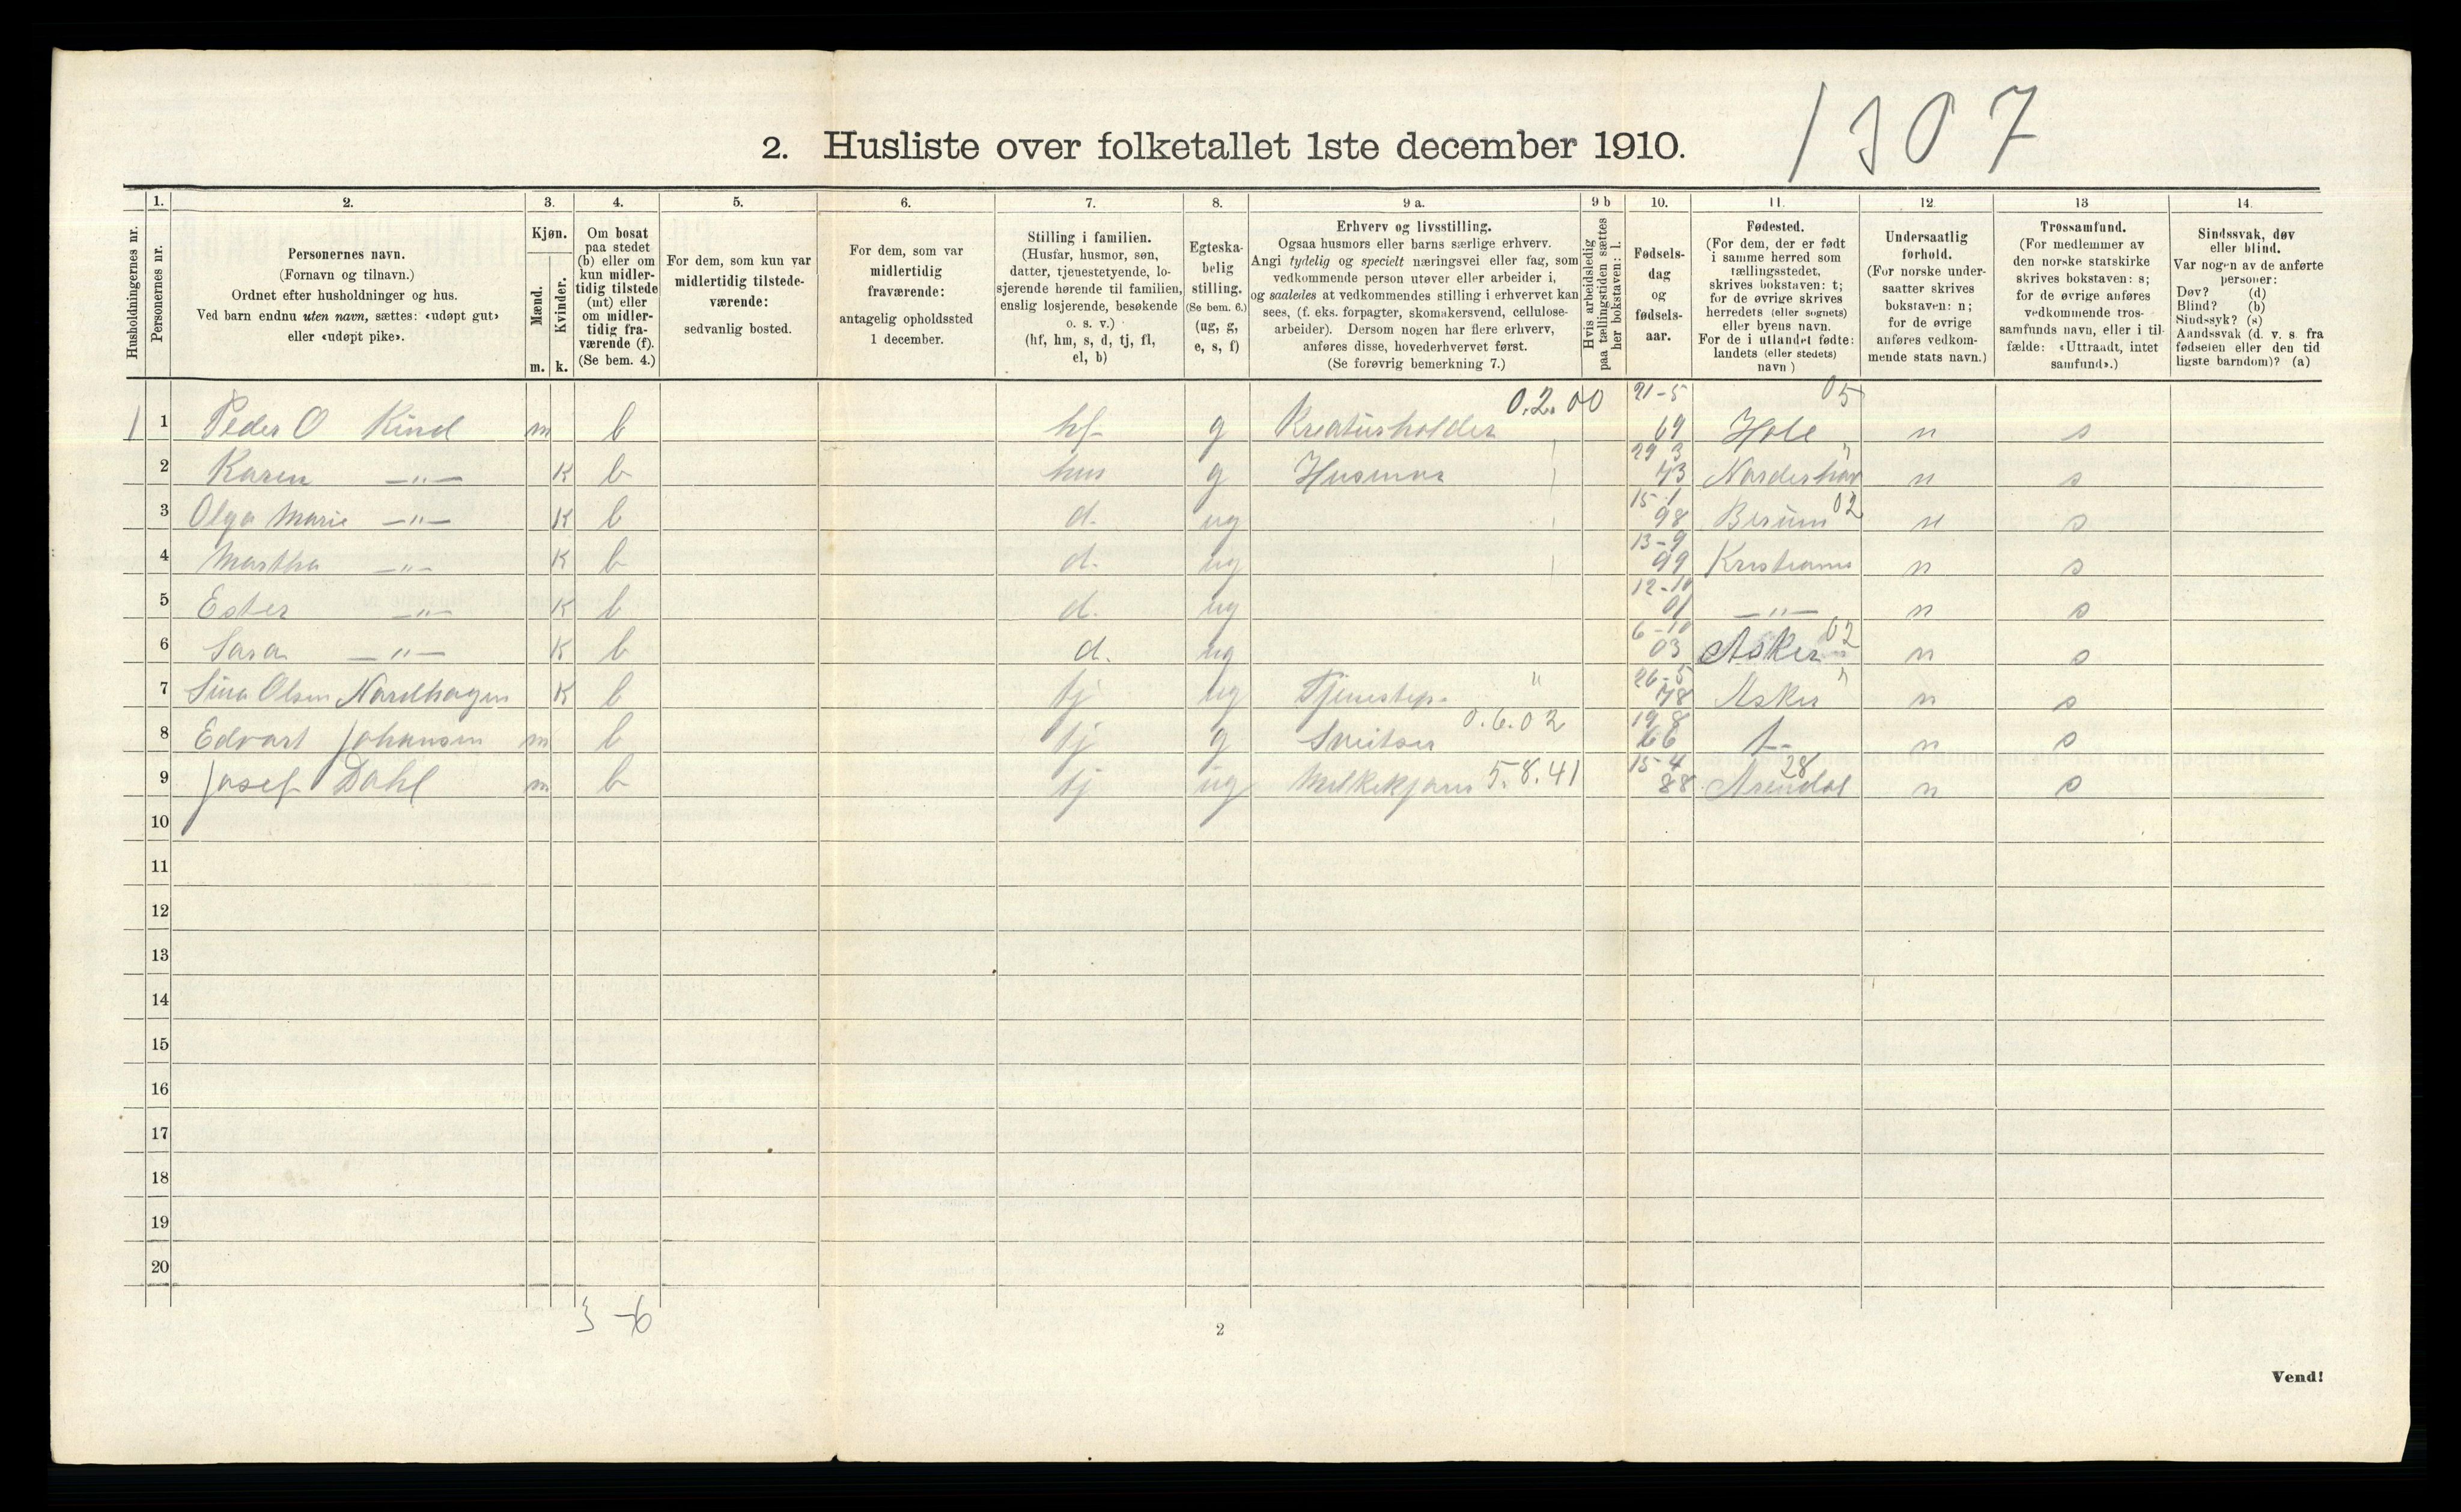 1307
2. Husliste over folketallet 1ste december 1910.
Husholdningernes nr.
1.
Personernes nr.
2.
Personernes navn.
(Fornavn og tilnavn.)
Ordnet efter husholdninger og hus.
Ved barn endnu uten navn, sættes: «udøpt gut»
eller «udøpt pike».
3.
Kjøn.
Mænd.
Kvinder.
m. k.
4.
Om bosat
paa stedet
(b) eller om
kun midler-
tidig tilstede
(mt) eller
om midler-
tidig fra-
værende (f).
(Se bem. 4.)
5.
For dem, som kun var
midlertidig tilstede-
værende:
sedvanlig bosted.
6.
For dem, som var
midlertidig
fraværende:
antagelig opholdssted
1 december.
7.
Stilling i familien.
(Husfar, husmor, søn,
datter, tjenestetyende, lo-
sjerende hørende til familien,
enslig losjerende, besøkende
o. s. v.)
(hf, hm, s, d, tj, fl,
el, b)
8.
Egteska-
belig
stilling.
(Se bem. 6.)
(ug, g,
e, s, f)
9 a.
Erhverv og livsstilling.
Ogsaa husmors eller barns særlige erhverv.
Angi tydelig og specielt næringsvei eller fag, som
vedkommende person utøver eller arbeider i,
og saaledes at vedkommendes stilling i erhvervet kan
sees, (f. eks. forpagter, skomakersvend, cellulose-
arbeider). Dersom nogen har flere erhverv,
anføres disse, hovederhvervet først.
(Se forøvrig bemerkning 7.)
9 b
Hvis arbeidsledig
paa tællingstiden sættes
her bokstaven: l.
10.
Fødsels-
dag
og
fødsels-
aar.
11.
Fødested.
(For dem, der er født
i samme herred som
tællingsstedet,
skrives bokstaven: t;
for de øvrige skrives
herredets (eller sognets)
eller byens navn.
For de i utlandet fødte:
landets (eller stedets)
navn)
12.
Undersaatlig
forhold.
(For norske under-
saatter skrives
bokstaven: n;
for de øvrige
anføres vedkom-
mende stats navn.)
13
Trossamfund.
(For medlemmer av
den norske statskirke
skrives bokstaven: s;
for de øvrige anføres
vedkommende tros-
samfunds navn, eller i til-
fælde: «Uttraadt, intet
samfund».)
14.
Sindssvak, døv
eller blind.
Var nogen av de anførte
personer:
Døv? (d)
Blind? (b)
Sindssyk? (s)
Aandssvak (d. v. s. fra
fødselen eller den tid
ligste barndom)? (a)
1 1 Peder O Kind m b hf g Kreaturholder 0.2.00 21-5 69 Hole 05 n s
2 Karen —"— K b hus g Husmor 29 3 73 Norderhov " n s
3 Olga Marie —"— K b d. ug 15-1 98 Berum 02 n s
4 Martha —"— K b d. ug 13-9 99 Kristiania n s
5 Ester —"— K b d. ug 12-10 01 —"— n s
6 Sara —"— K b d. ug 6-10 03 Asker 02 n s
7 Sina Olsen Nordhagen K b tj ug Tjenestep. " 26-5 78 Asker " n s
8 Edvart Johansen m b tj g Sveitser 0.6.02 19 8 66 t. n s
9 Josef Dahl m b tj ug Melkekjører 5.8.41 15-4 88 Arendal 28 n s
10
11
12
13
14
15
16
17
18
19
20
3 - 6
2
Vend!